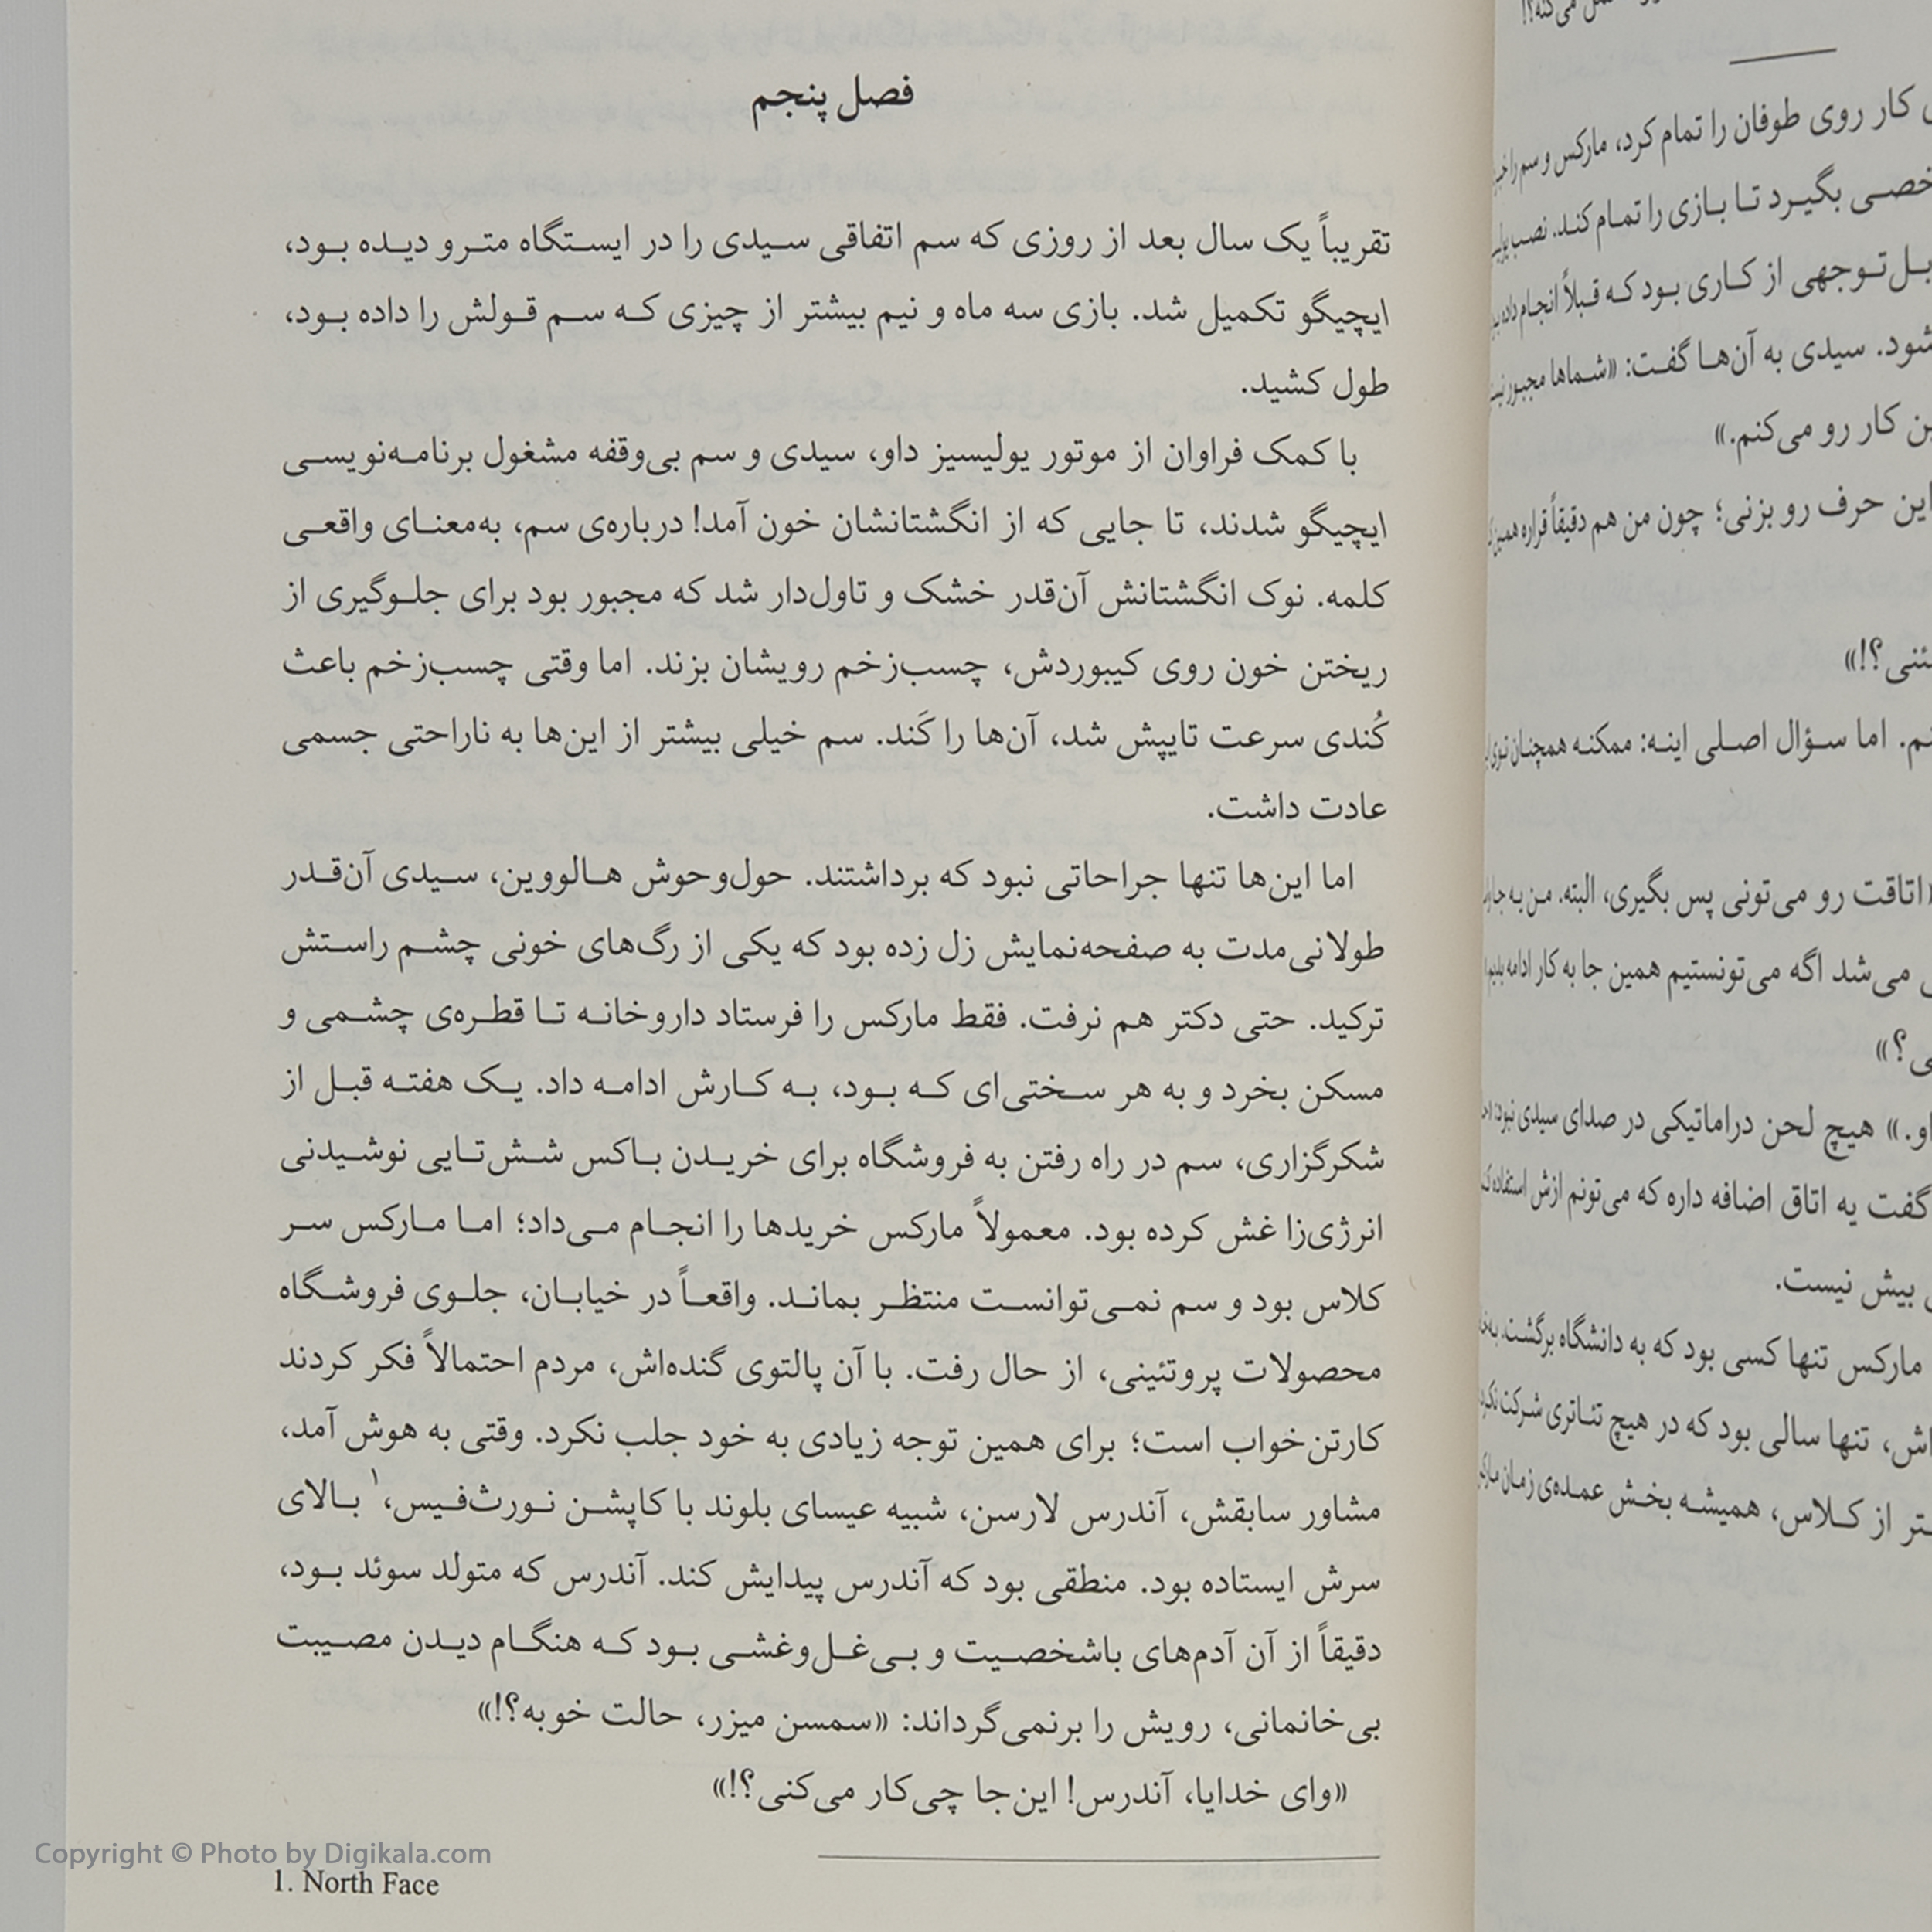 فصل پنجم
تقریباً یک سال بعد از روزی که سم اتفاقی سیدی را در ایستگاه مترو دیده بود،
ایچیگو تکمیل شد. بازی سه ماه و نیم بیشتر از چیزی که سم قولش را داده بود،
طول کشید.
با کمک فراوان از موتور یولیسیز داو، سیدی و سم بی‌وقفه مشغول برنامه‌نویسی
ایچیگو شدند، تا جایی که از انگشتانشان خون آمد! درباره‌ی سم، به‌معنای واقعی
کلمه. نوک انگشتانش آن‌قدر خشک و تاول‌دار شد که مجبور بود برای جلوگیری از
ریختن خون روی کیبوردش، چسب‌زخم رویشان بزند. اما وقتی چسب‌زخم باعث
کُندی سرعت تایپش شد، آن‌ها را کَند. سم خیلی بیشتر از این‌ها به ناراحتی جسمی
عادت داشت.
اما این‌ها تنها جراحاتی نبود که برداشتند. حول‌وحوش هالووین، سیدی آن‌قدر
طولانی‌مدت به صفحه‌نمایش زل زده بود که یکی از رگ‌های خونی چشم راستش
ترکید. حتی دکتر هم نرفت. فقط مارکس را فرستاد داروخانه تا قطره‌ی چشمی و
مسکن بخرد و به هر سختی‌ای که بود، به کارش ادامه داد. یک هفته قبل از
شکرگزاری، سم در راه رفتن به فروشگاه برای خریدن باکس شش‌تایی نوشیدنی
انرژی‌زا غش کرده بود. معمولاً مارکس خریدها را انجام می‌داد؛ اما مارکس سر
کلاس بود و سم نمی‌توانست منتظر بماند. واقعاً در خیابان، جلوی فروشگاه
محصولات پروتئینی، از حال رفت. با آن پالتوی گنده‌اش، مردم احتمالاً فکر کردند
کارتن‌خواب است؛ برای همین توجه زیادی به خود جلب نکرد. وقتی به هوش آمد،
مشاور سابقش، آندرس لارسن، شبیه عیسای بلوند با کاپشن نورث‌فیس،۱ بالای
سرش ایستاده بود. منطقی بود که آندرس پیدایش کند. آندرس که متولد سوئد بود،
دقیقاً از آن آدم‌های باشخصیت و بی‌غل‌وغشی بود که هنگام دیدن مصیبت
بی‌خانمانی، رویش را برنمی‌گرداند: «سمسن میزر، حالت خوبه؟!»
«وای خدایا، آندرس! این‌جا چی‌کار می‌کنی؟!»
1. North Face
Copyright © Photo by Digikala.com
کار روی طوفان را تمام کرد، مارکس و سم را
بگیرد تا بازی را تمام کند. نصب
از کاری بود که قبلاً انجام داده
شود. سیدی به آن‌ها گفت: «شماها مجبور
کار رو می‌کنم.»
این حرف رو بزنی؛ چون من هم دقیقاً قراره
اما سؤال اصلی اینه: ممکنه همچنان توی
«اتاقت رو می‌تونی پس بگیری، البته. من به
می‌شد اگه می‌تونستیم همین جا به کار ادامه بدیم.
هیچ لحن دراماتیکی در صدای سیدی نبود؛
گفت یه اتاق اضافه داره که می‌تونم ازش استفاده
بیش نیست.
مارکس تنها کسی بود که به دانشگاه برگشت،
تنها سالی بود که در هیچ تئاتری شرکت
از کلاس، همیشه بخش عمده‌ی زمان